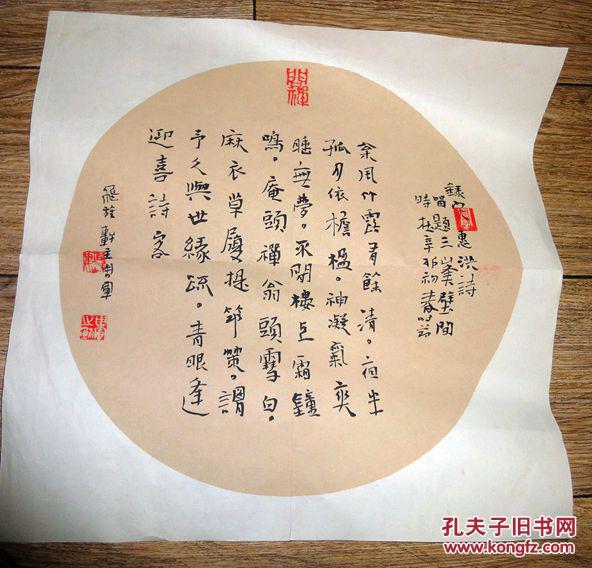 錄宋惠洪詩
留題三峯壁間
時在辛卯初春時節
枀風竹露有餘清。夜半
孤月依檐楹。神凝氣爽
睡無夢。不聞樓上霜鐘
鳴。庵頭禪翁頭雪白。
麻衣草屨提筇策。謂
予久與世緣疏。青眼逢
迎喜詩客
軒主周軍
孔夫子旧书网
www.kongfz.com